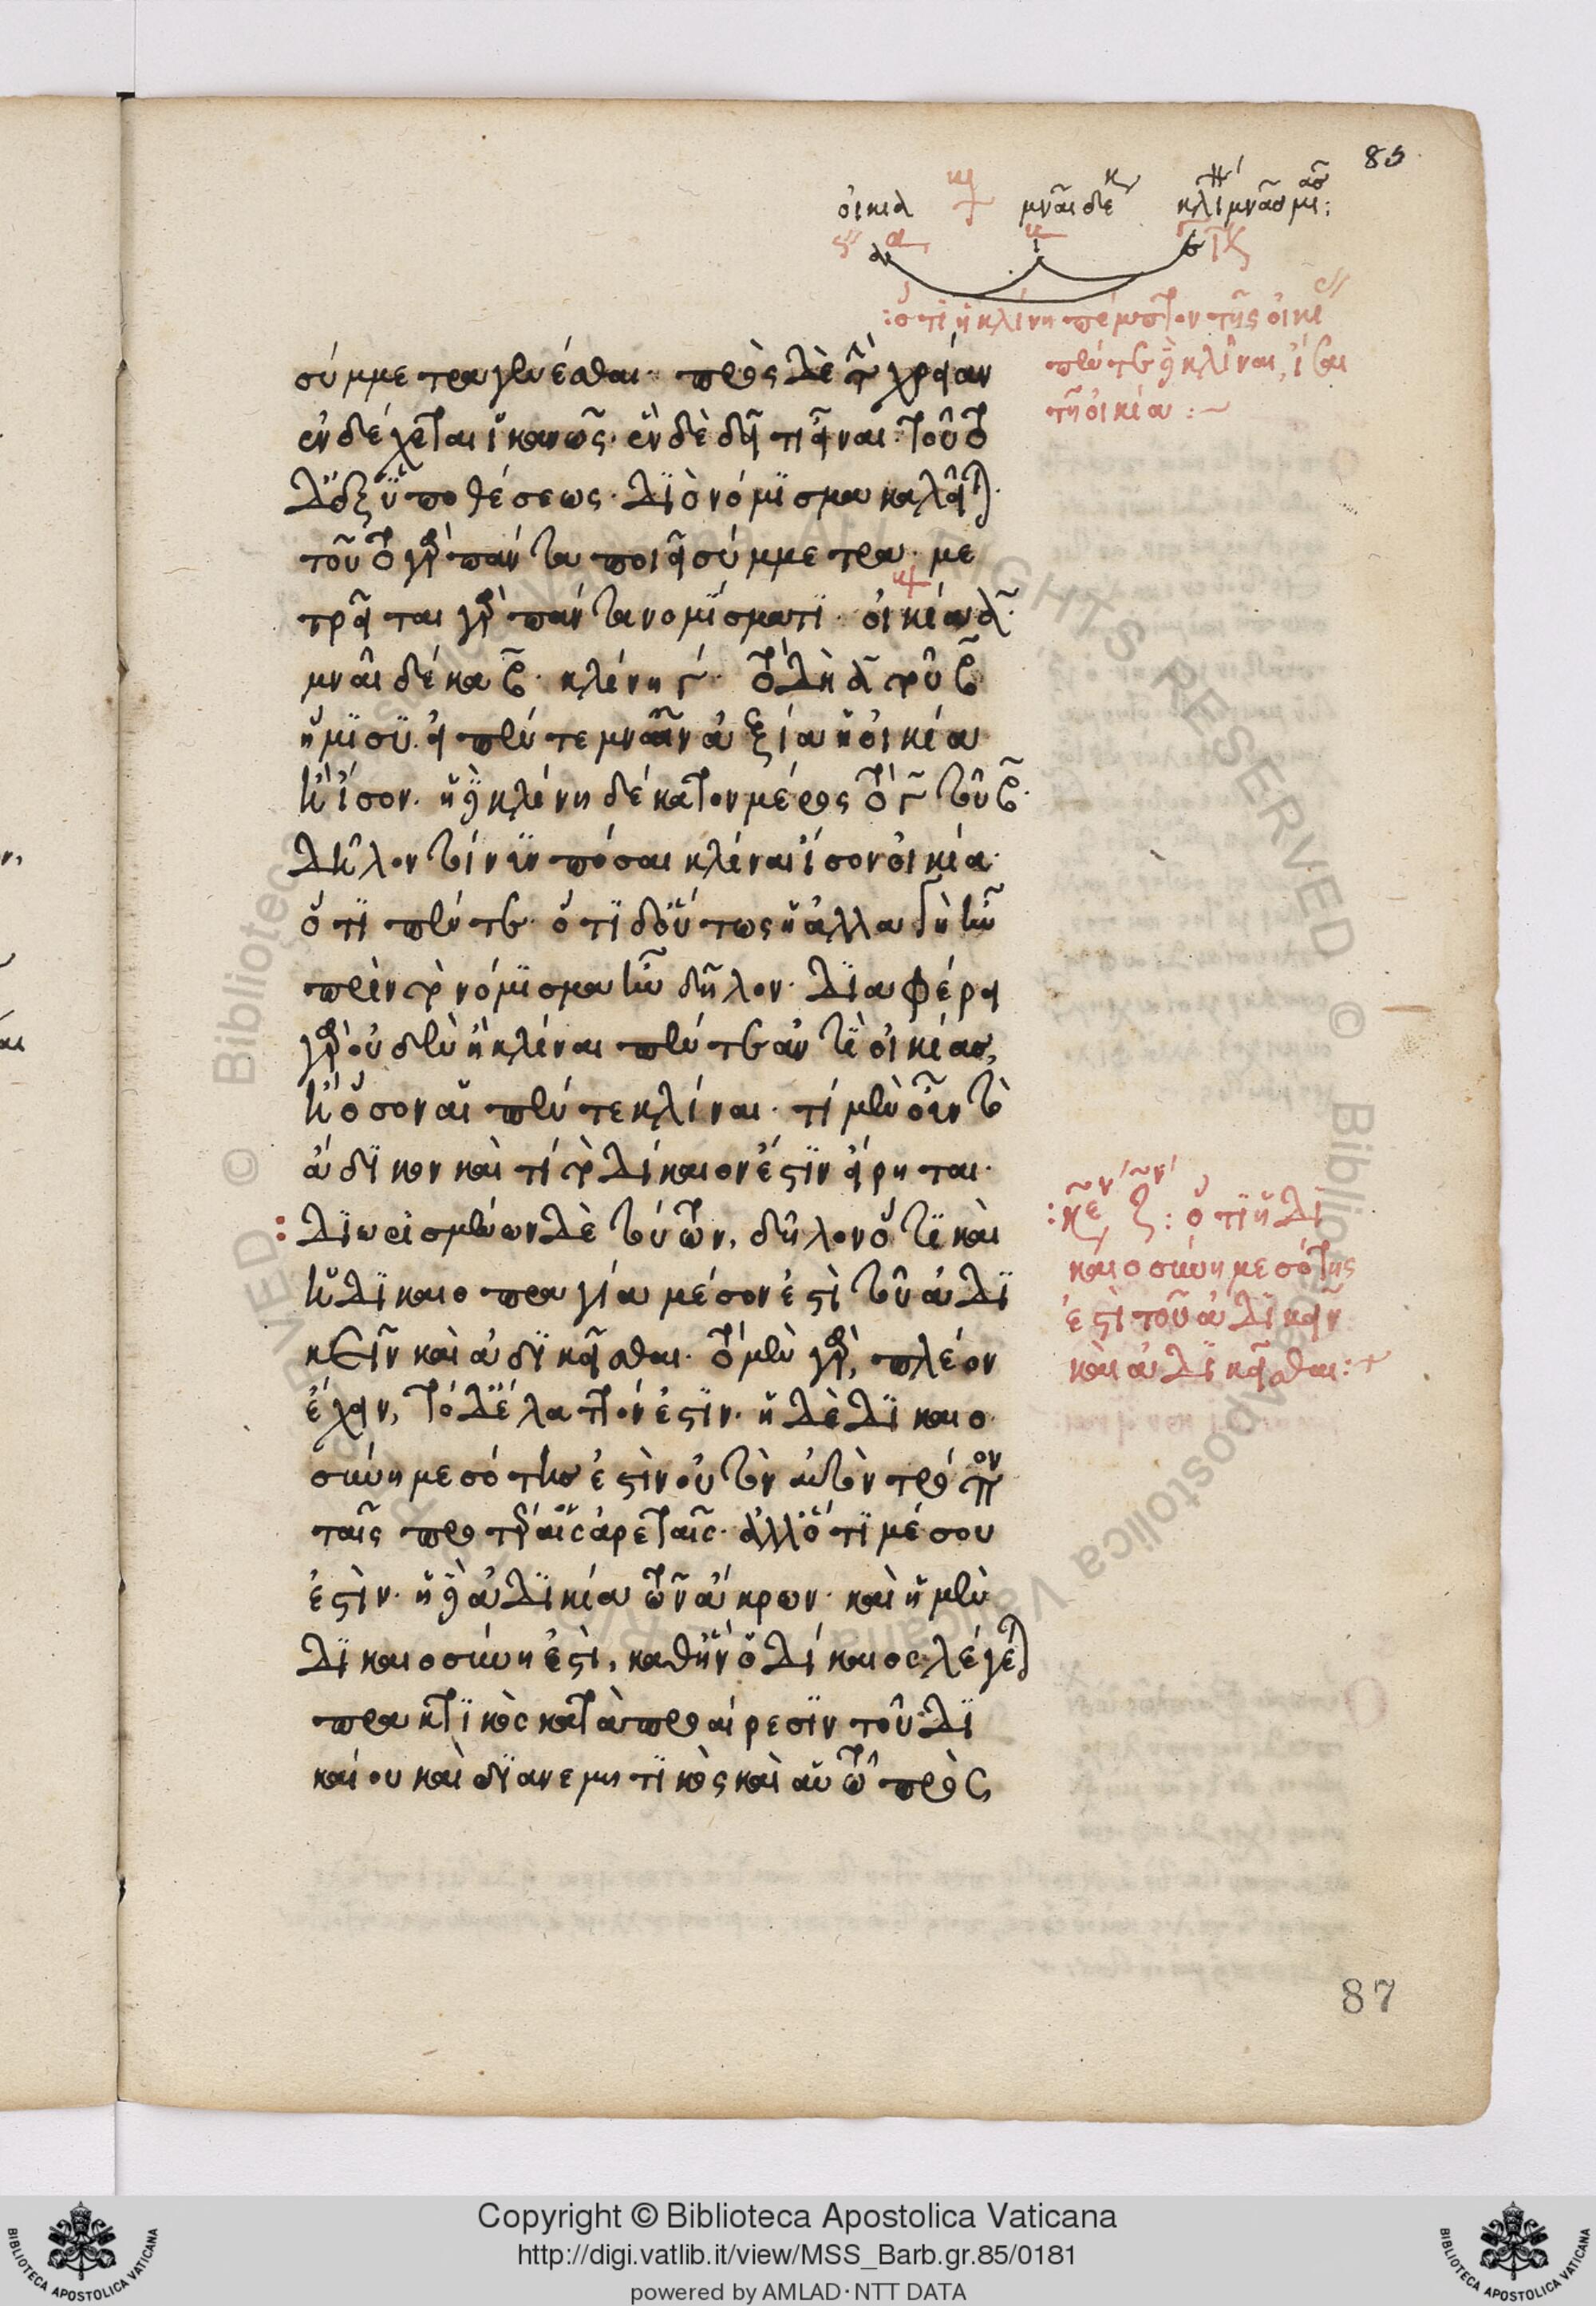 85
οἰκία μναῖ δέκα κλί μνᾶσ μι:
:ὅτι ἡ κλίνη πέμπτον τῆς οἰκί
πέντε δὲ κλῖναι, ἴσαι
τῆ οἰκία :~
σύμμετρα γενέσθαι· πρὸς δὲ τὴν χρείαν
ἐνδέχεται ἱκανῶς· ἓν δὲ δεῖ τι εἶναι· τοῦτο
δ' ἐξ ὑποθέσεως· διὸ νόμισμα καλεῖται·
τοῦτο γὰρ πάντα ποιεῖ σύμμετρα· με
τρεῖται γὰρ πάντα νομίσματι· οἰκία α·
μναῖ δέκα β· κλίνη γ· τὸ δὴ α τοῦ β
ἥμισυ· εἰ πέντε μνῶν ἀξία ἡ οἰκία
ἢ ἴσον· ἡ δὲ κλίνη δέκατον μέρος τὸ γ τοῦ β·
δῆλον τοίνυν πόσαι κλίναι ἴσον οἰκία·
ὅτι πέντε· ὅτι δ' οὕτως ἡ ἀλλαγὴ ἦν
πρὶν τὸ νόμισμα ἦν δῆλον· διαφέρει
γὰρ οὐδὲν ἢ κλίναι πέντε ἀντὶ οἰκίασ,
ἢ ὅσον αἱ πέντε κλίναι· τί μὲν οὖν τὸ
ἄδικον καὶ τί τὸ δίκαιον ἐστὶν εἴρηται·
: διωρισμένων δὲ τούτων, δῆλον ὅτι καὶ
ἡ δικαιοπραγία μέσον ἐστὶ τοῦ ἀδι
κεῖν καὶ ἀδικεῖσθαι· τὸ μὲν γὰρ, πλέον
ἔχειν, τὸ δ' ἔλαττόν ἐστιν· ἡ δὲ δικαιο
σύνη μεσότης ἐστὶν οὐ τὸν αὐτὸν τρόπον
ταῖς προτέραις ἀρεταῖς· ἀλλ' ὅτι μέσου
ἐστὶν· ἡ δὲ ἀδικία τῶν ἄκρων· καὶ ἡ μὲν
δικαιοσύνη ἐστὶ, καθ' ἣν ὁ δίκαιος λέγεται
πρακτικὸς κατὰ προαίρεσιν τοῦ δι
καίου καὶ διανεμητικὸς καὶ αὑτῶ πρὸς
ὅτι ἡ δι
καιοσύνη μεσότης
ἐστὶ τοῦ ἀδικεῖν
καὶ ἀδικεῖσθαι:~
87
Copyright © Biblioteca Apostolica Vaticana
http://digi.vatlib.it/view/MSS_Barb.gr.85/0181
powered by AMLAD·NTT DATA